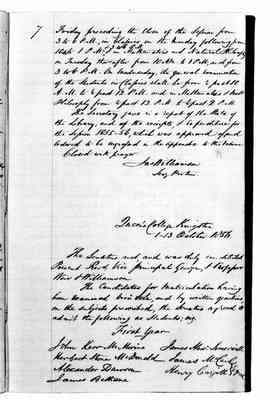 7
Friday preceding the close of the Session from
3 to 6 P.M., in Classics on the Monday following from
10 A.M. to 1 P.M. & in Mathematics and Natural Philosophy
on Tuesday thereafter from 10 A.M. to 1 P.M. and from
3 to 6 P.M. On Wednesday, the general examination
of the Students in Classics shall be from ½ past 10
A.M. to ½ past 12 P.M. and in Mathematics & Nat.
Philosophy from ½ past 12 P.M. to ½ past 2 P.M.
The Secretary gave in a report of the State of
the Library, and of the receipts & Expenditure for
the Session 1855-56, which was approved of and
ordered to be engrossed in the Appendix to the Minutes.
Closed with prayer
Ja Williamson
Queen's College Kingston
13 October 1856
The Senatus met, and was duly constituted
Present Revd Vice Principal George, & Professors
Weir & Williamson
The Candidates for Matriculation having
been examined and by written questions
on the subjects prescribed, the Senatus agreed to
admit the following as Students, viz.
First Year
John Kerr McMorine
James
Herbert Stone McDonald
James McC
Alexander Dawson
Henry
James Bethune